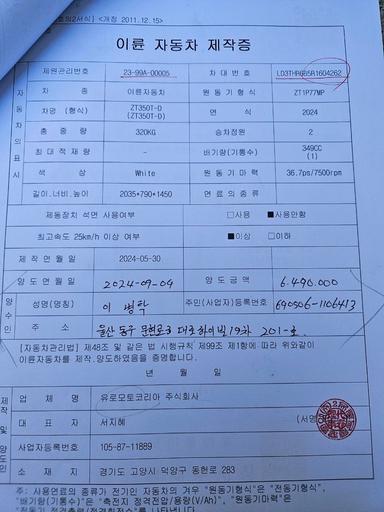 호의2서식] <개정 2011.12.15>
이륜 자동차 제작증
제원관리번호 23-99A-00005 차대번호 LD3THR6B5R1604262
자동차의표시
차종 이륜자동차 원동기형식 ZT1P77MP
차명 (형식) ZT350T-D (ZT350T-D) 연식 2024
총중량 320KG 승차정원 2
최대적재량 - 배기량(기통수) 349CC (1)
색상 White 원동기마력 36.7ps/7500rpm
길이.너비.높이 2035*790*1450 연료의종류
제동장치 석면 사용여부 □사용 ■사용안함
최고속도 25km/h 이상 여부 ■이상 □이하
제작연월일 2024-05-30
양도연월일 2024-09-09 양도금액 6.490.000
양수인
성명(명칭) 이병락 주민(사업자)등록번호 690506-1106413
주소 울산 동구 문현로3 대로하이빌 19차 201-호
[자동차관리법] 제48조 및 같은 법 시행규칙 제99조 제1항에 따라 위와같이
이륜자동차를 제작.양도하였음을 증명합니다.
년 월 일
제작 및 양도인
업체명 유로모토코리아 주식회사
대표자 서지혜 (서명
사업자등록번호 105-87-11889
소재지 경기도 고양시 덕양구 동헌로 283
주: 사용연료의 종류가 전기인 자동차의 겨우 "원동기형식"은 "전동기형식",
"배기량(기통수)"은 "축전지 정격전압/용량(V/Ah)", "원동기마력"은